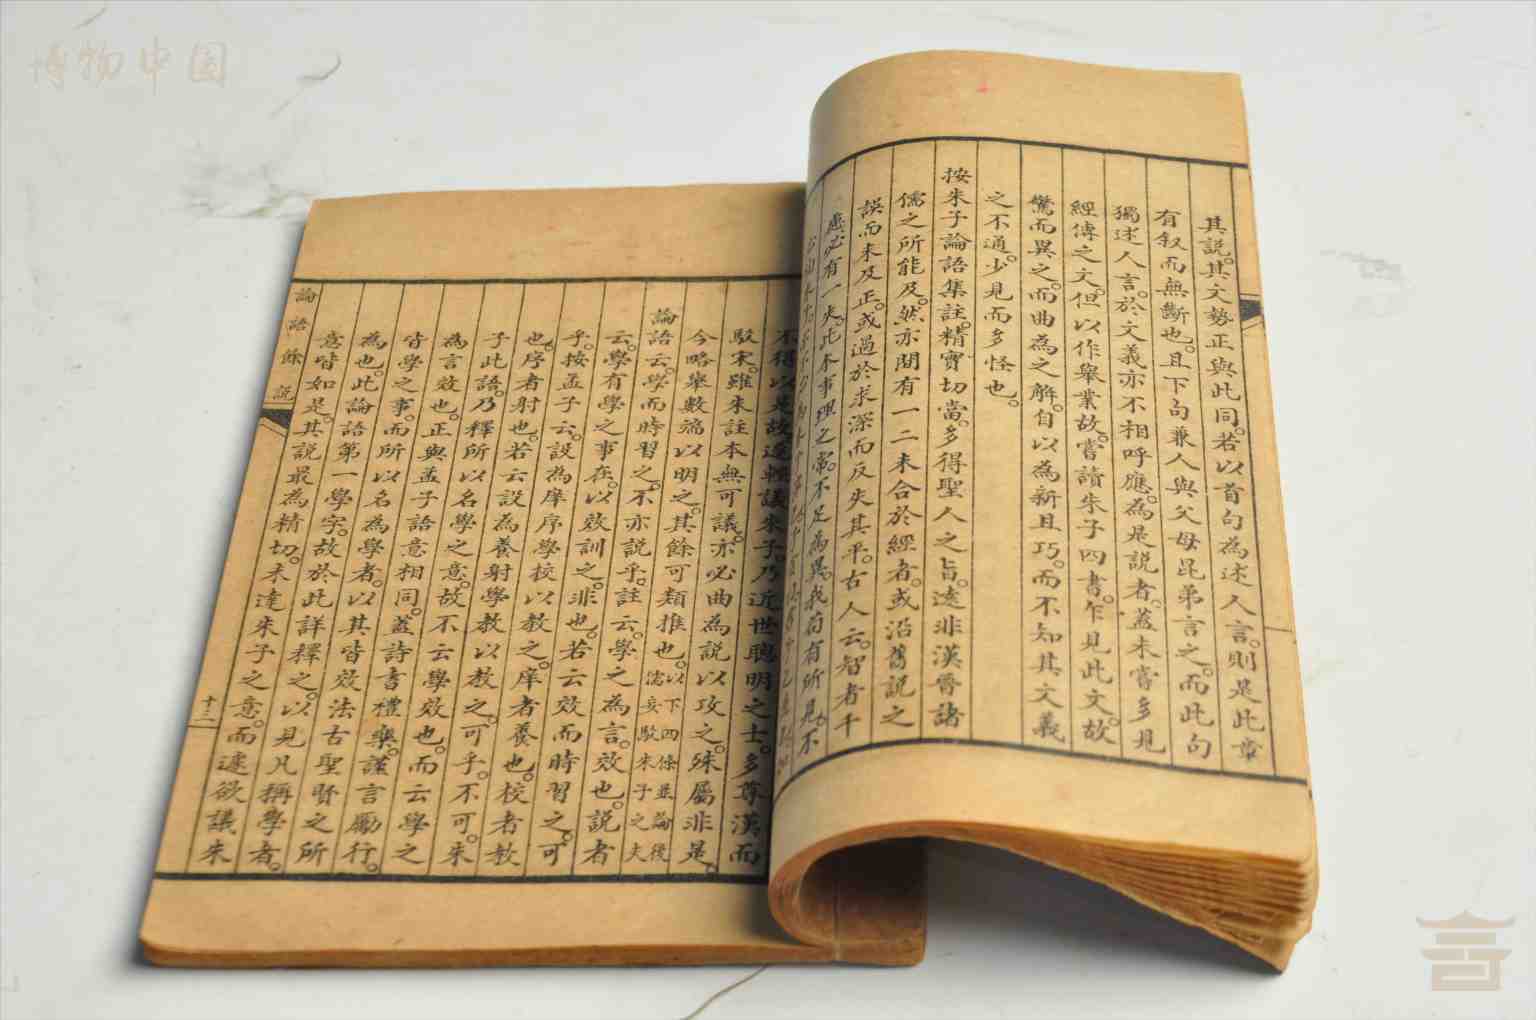 博物中国
其說。其文勢正與此同。若以首句為述人言。則是此章
有叙而無斷也。且下句兼人與父母昆弟言之。而此句
獨述人言。於文義亦不相呼應。為是說者。蓋未嘗多見
經傳之文。但以作舉業故。嘗讀朱子四書。乍見此文。故
驚而異之。而曲為之解。自以為新且巧。而不知其文義
之不通。少見而多怪也。
按朱子論語集註。精實切當。多得聖人之旨。遠非漢晉諸
儒之所能及。然亦間有一二未合於經者。或沿舊說之
誤而未及正。或過於求深而反失其平。古人云。智者千
慮必有一失。此本事理之常。不足為異。我苟有所見。不
不得以是故遂輕議朱子。乃近世聰明之士。多尊漢而
駁宋。雖朱註本無可議。亦必曲為說以攻之。殊屬非是。
今略舉數端以明之。其餘可類推也。以下四條並論後儒妄駁朱子之失
論語云。學而時習之。不亦說乎。註云。學之為言。效也。說者
云。學有學之事在。以效訓之。非也。若云效而時習之。可
乎。按孟子云。設為庠序學校以教之。庠者養也。校者教
也。序者射也。若云設為養射學教以教之。可乎。不可。朱
子此語。乃釋所以名學之意。故不云學效也。而云學之
為言效也。正與孟子語意相同。蓋詩書禮樂。謹言勵行。
皆學之事。而所以名為學者。以其皆效法古聖賢之所
為也。此論語第一學字。故於此詳釋之。以見凡稱學者。
意皆如是。其說最為精切。未達朱子之意。而遽欲議朱
論語餘說
十三